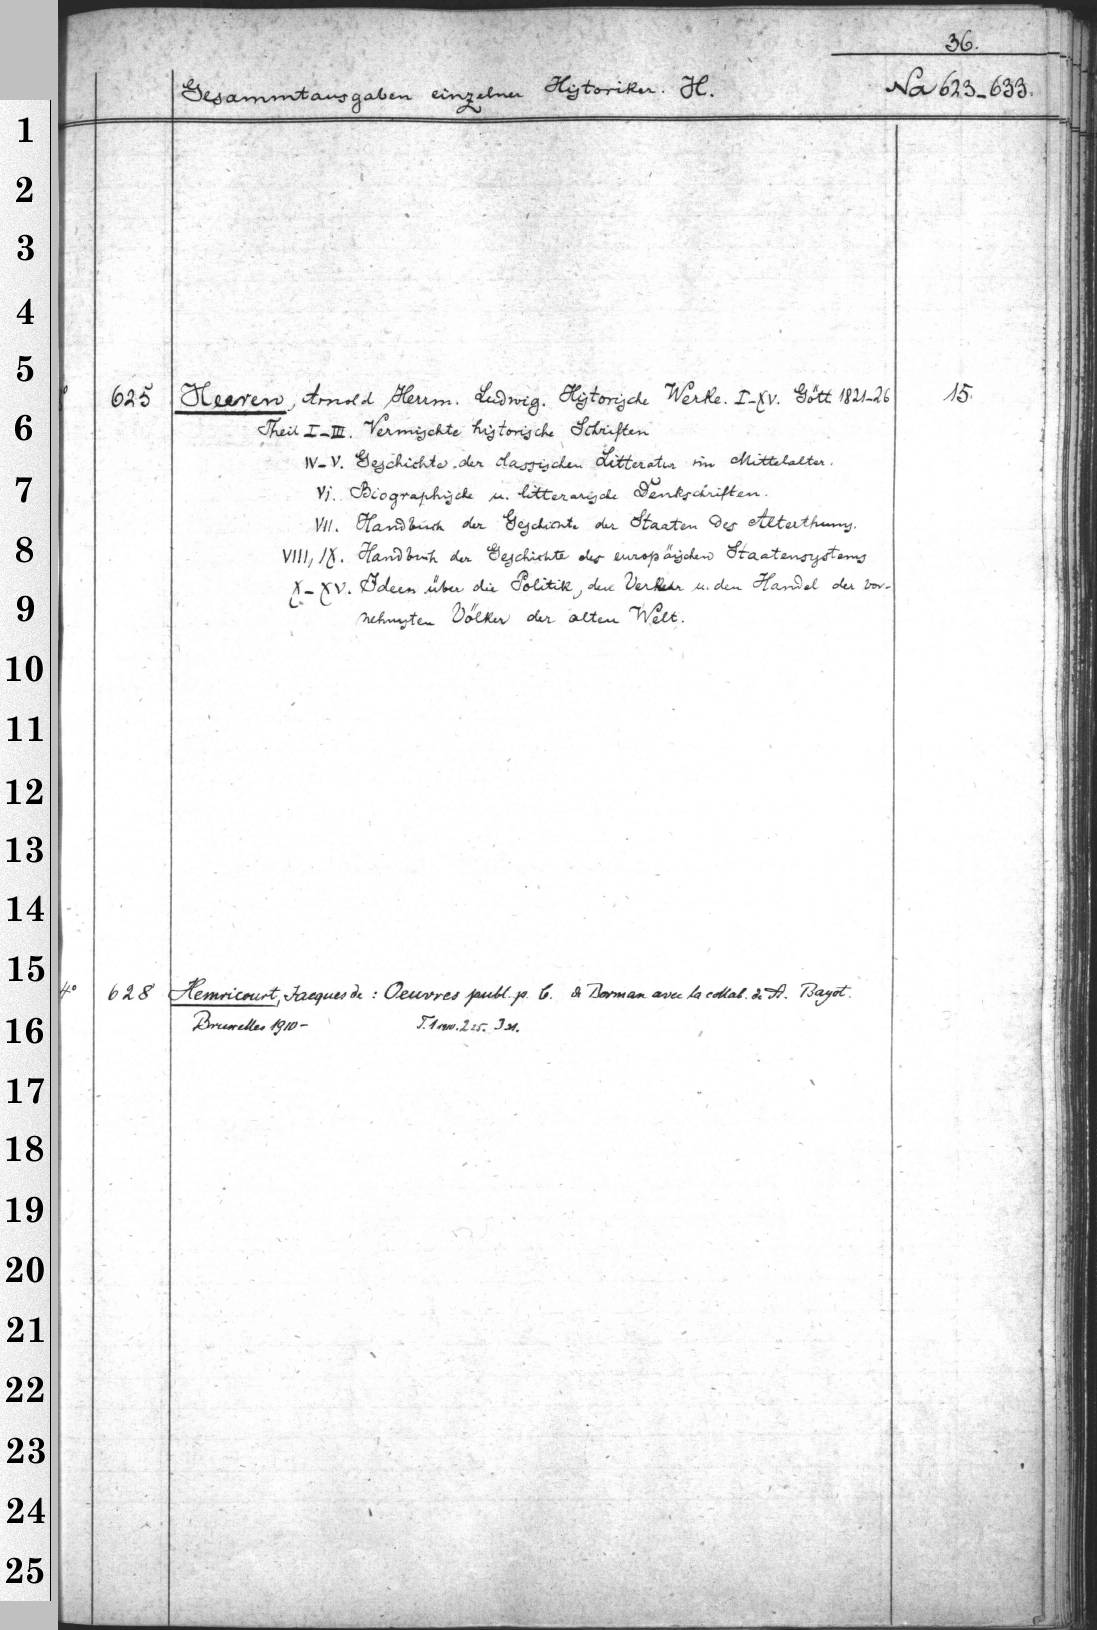 36.
Gesammtausgaben einzelner Historiker. H. Na 623-633.
1
2
3
4
5
625 Heeren, Arnold Herm. Ludwig. Historische Werke. I-XV. Gött 1821-26 15.
6
Theil I-III. Vermischte historische Schriften
IV-V. Geschichte der classischen Litteratur im Mittelalter.
7
VI. Biographische u. litterarische Denkschriften.
VII. Handbuch der Geschichte der Staaten des Alterthums.
8
VIII, IX. Handbuch der Geschichte des europäischen Staatensystems
X-XV. Ideen über die Politik, den Verkehr u. den Handel der vor-
9
nehmsten Völker der alten Welt.
10
11
12
13
14
15
4° 628 Hemricourt, Jacques de: Oeuvres publ. p. C. de Borman avec la collab. de A. Bayot.
16
Bruxelles 1910- T. 1 1910. 2 25. 3 31.
17
18
19
20
21
22
23
24
25